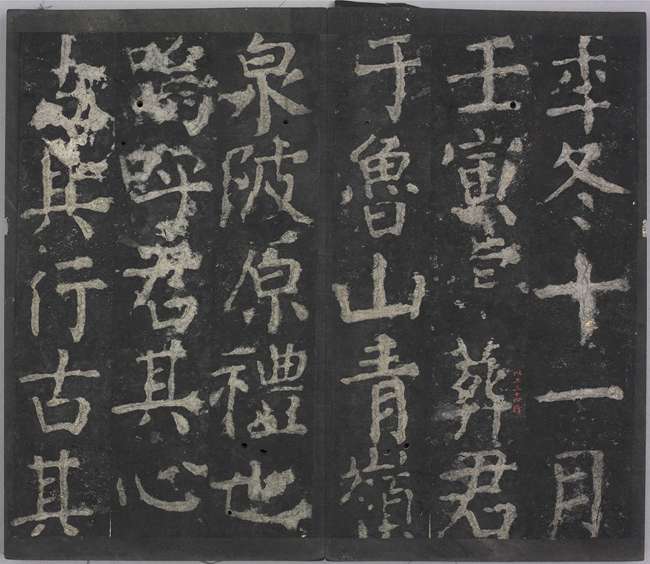 年冬十一月
壬寅葬君
于魯山青嶺
泉陂原禮也
嗚呼君其心
古其行古其